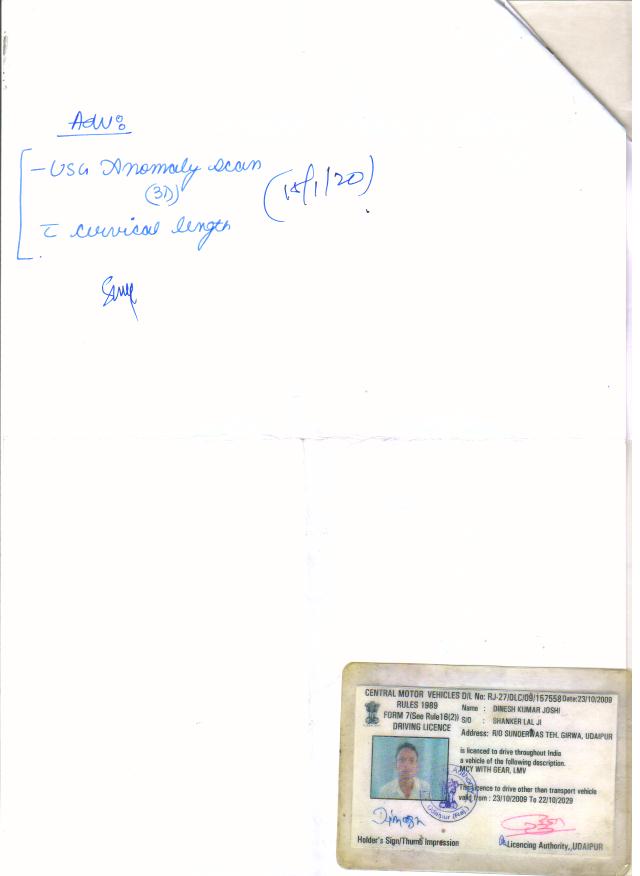 Adv:
- USG Anomaly scan
(3D)
(18/1/20)
c̄ cervical length
CENTRAL MOTOR VEHICLES D/L No: RJ-27/DLC/09/157558 Date:23/10/2009
RULES 1989
Name : DINESH KUMAR JOSHI
FORM 7(See Rule16(2))
S/O : SHANKER LAL JI
DRIVING LICENCE
Address: R/O SUNDERWAS TEH. GIRWA, UDAIPUR
is licenced to drive throughout India
a vehicle of the following description.
MCY WITH GEAR, LMV
The licence to drive other than transport vehicle
valid from : 23/10/2009 To 22/10/2029
Dinesh
Holder's Sign/Thumb Impression
Licencing Authority,,UDAIPUR